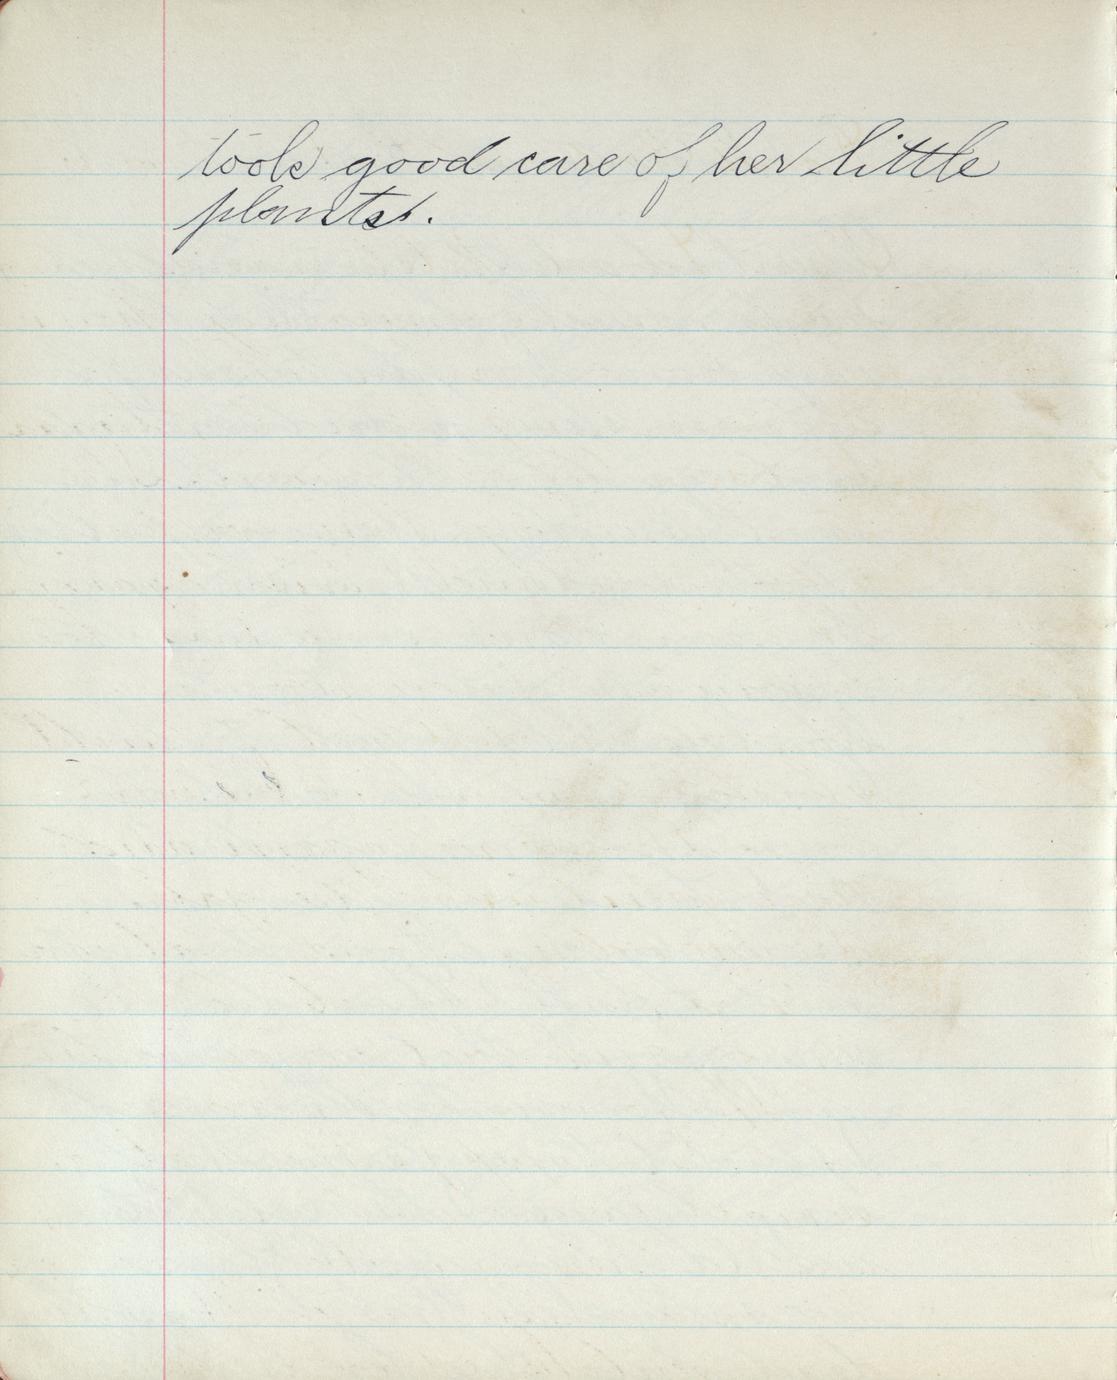 took good care of her little
plants.